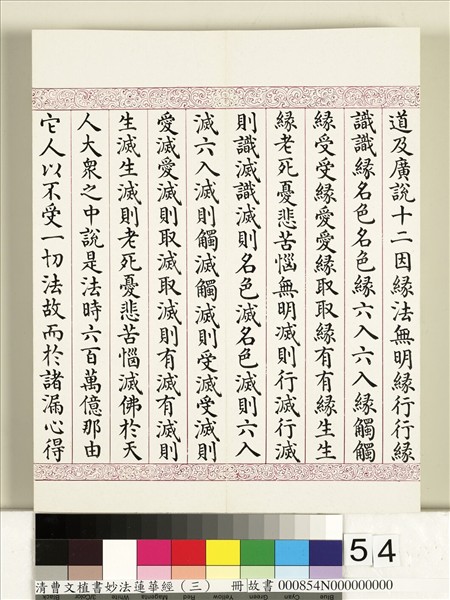 道及廣說十二因緣法無明緣行行緣
識識緣名色名色緣六入六入緣觸觸
緣受受緣愛愛緣取取緣有有緣生生
緣老死憂悲苦惱無明滅則行滅行滅
則識滅識滅則名色滅名色滅則六入
滅六入滅則觸滅觸滅則受滅受滅則
愛滅愛滅則取滅取滅則有滅有滅則
生滅生滅則老死憂悲苦惱滅佛於天
人大衆之中說是法時六百萬億那由
它人以不受一切法故而於諸漏心得
54
清曹文植書妙法蓮華經（三） 冊 故書 000854N000000000